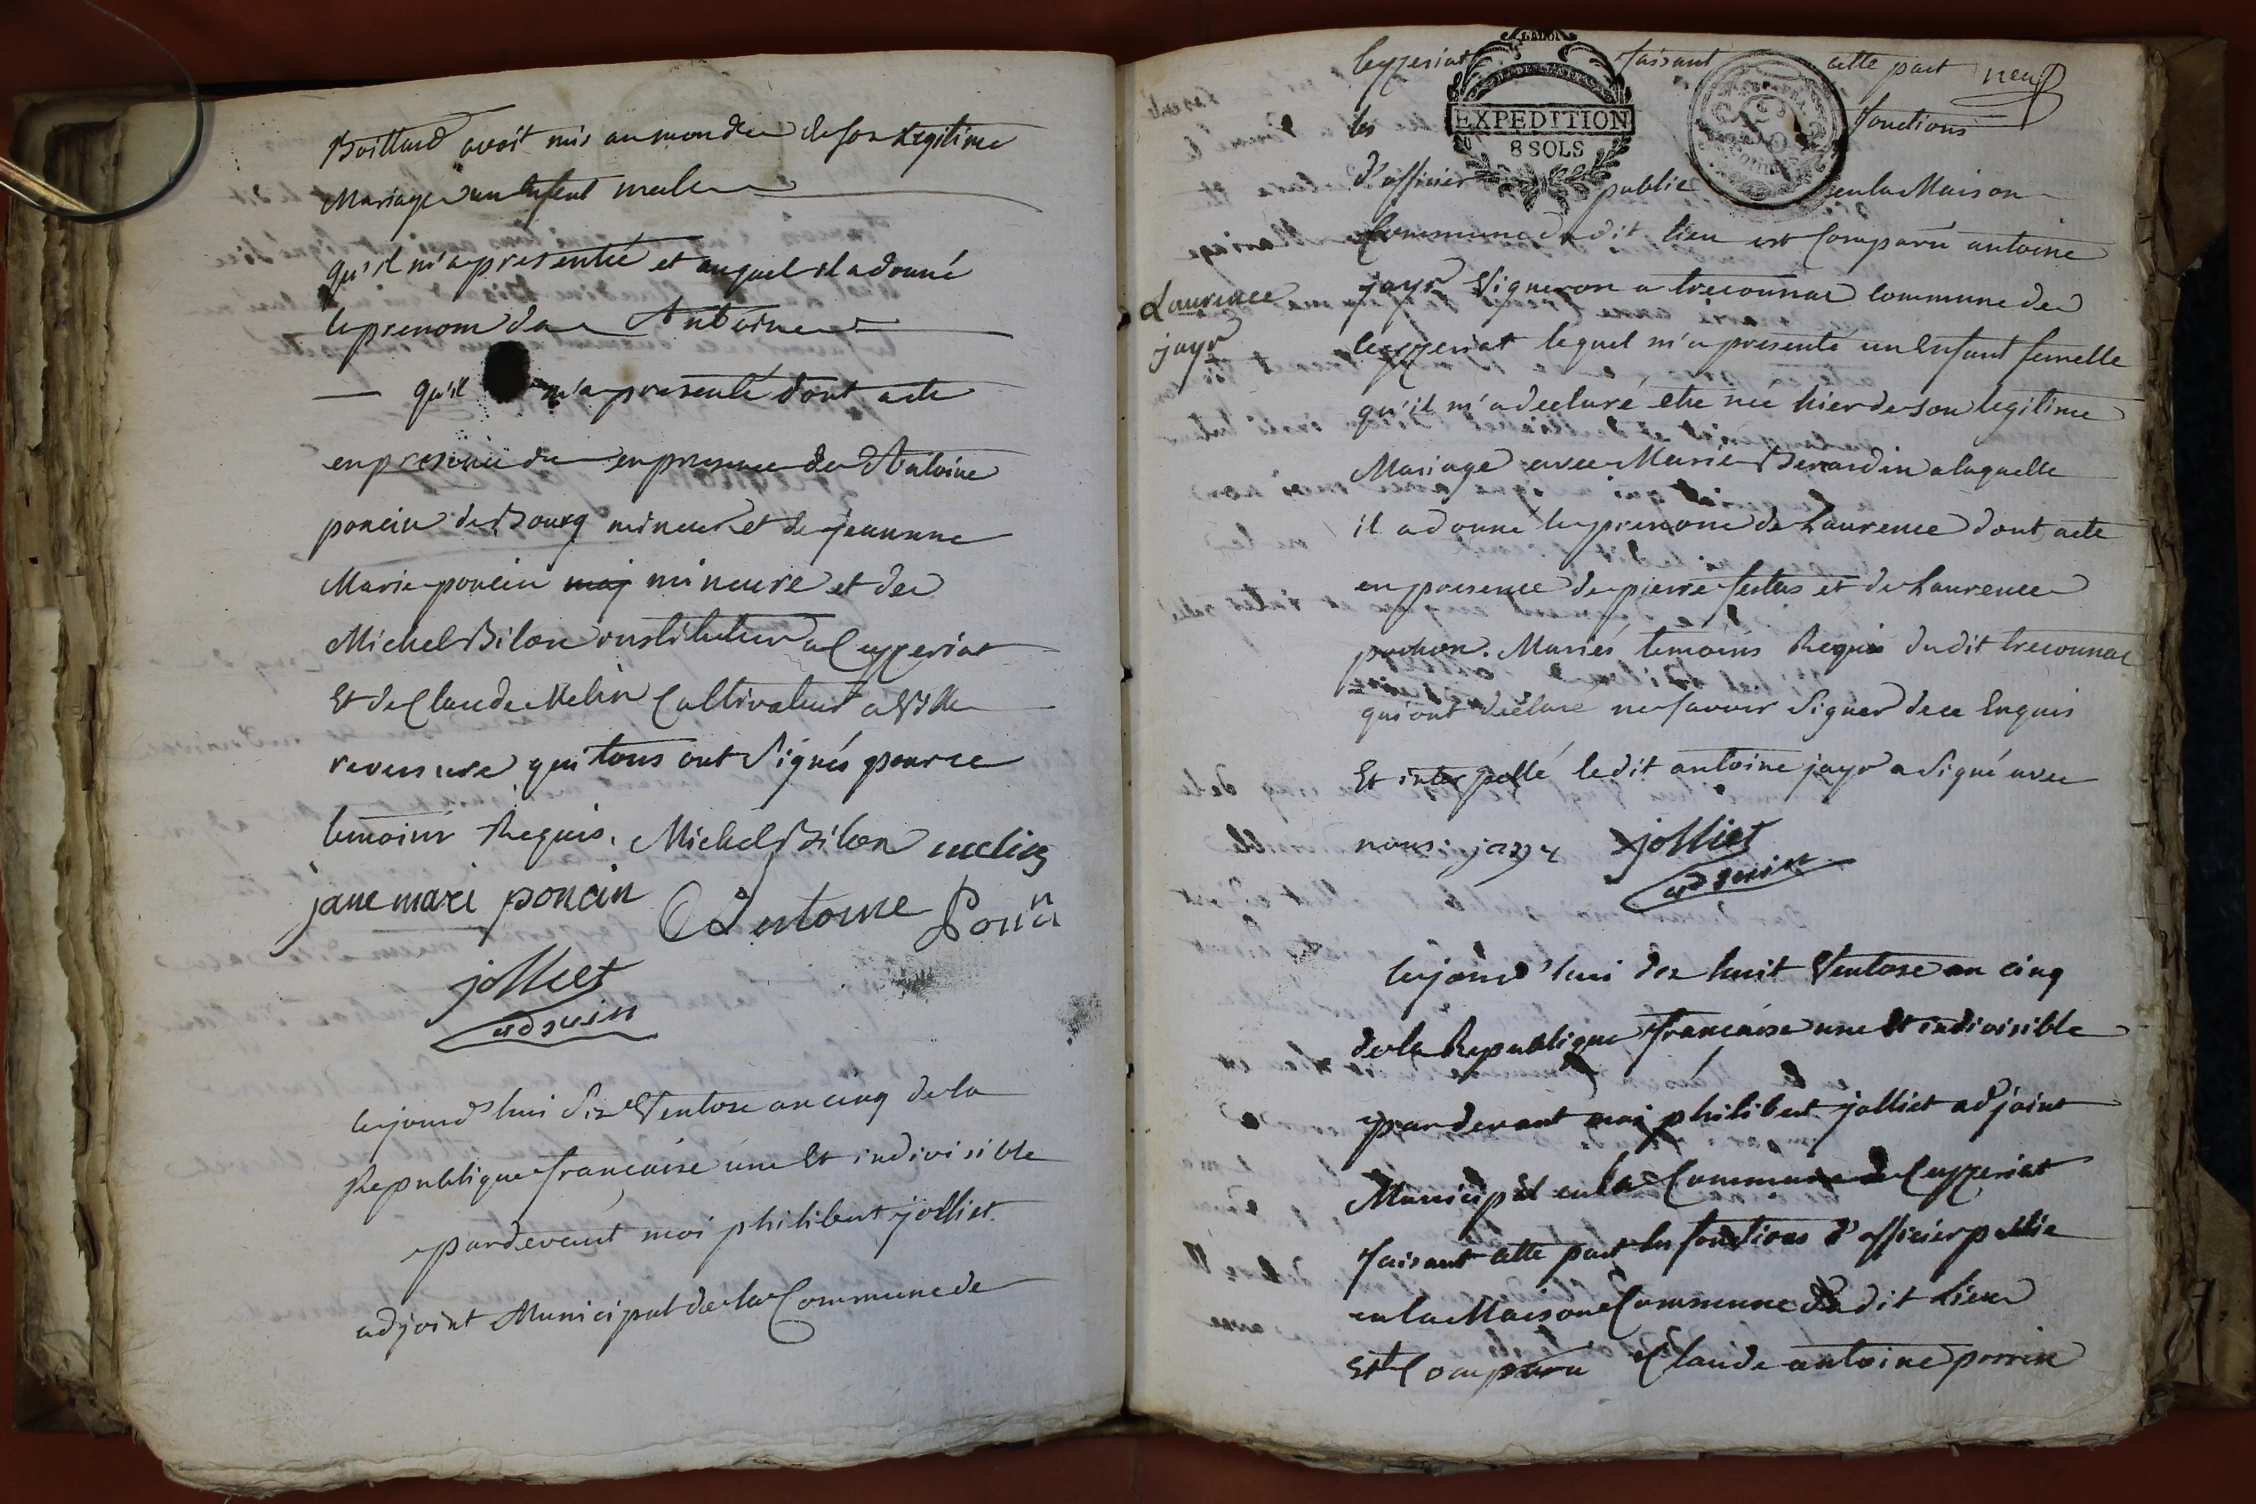 Boillard avoit mis au monde de son Legitime
Mariage un Enfent male
qu'il m'a presentée et auquel il a donné
le prenom de Antoine
— qu'il m'a presenté dont acte
en presence de en presence de Antoine
poncin de Bourg mineur et de jeannne
Marie poncin maj mineure et de
Michel Bilon instituteur a Ceyzeriat
Et de Claude Melin Cultivateur a Ville
reversure qui tous ont Signés pour ce
temoins Requis. Michel Bilon melin
jane mari poncin Antoine Ponin
jolliet
adjoint
Cejourd'hui Six Ventose an cinq de la
Republique francaise une Et indivisible
pardevant moi philibert jolliet
adjoint Municipal de la Commune de
Ceyzeriat faisant cette part neuf
les fonctions
EXPEDITION
8 SOLS
d'officier public en la Maison
Commune du dit lieu est Comparu antoine
jayr Vigneron a treconnac Commune de
Laurence
jayr
Ceyzeriat lequel m'a presenté un Enfant femelle
qu'il m'a declaré etre née hier de son legitime
Mariage avec Marie Berardin a laquelle
il a donné le prenom de Laurence dont acte
en presence de pierre et de Laurence
pochon. Mariés temoins Requis du dit treconnac
qui ont déclaré ne savoir Signer de ce Enquis
Et interpellé le dit antoine jayr a Signé avec
nous. jayr jolliet
adjoint
Cejourd'hui dix huit Ventose an cinq
de la Republique francaise une Et indivisible
pardevant moi philibert jolliet adjoint
Municipal en la Commune de Ceyzeriat
faisant cette part les fonctions d'officier public
en la Maison Commune du dit lieu
Est Comparu Claude antoine perrin